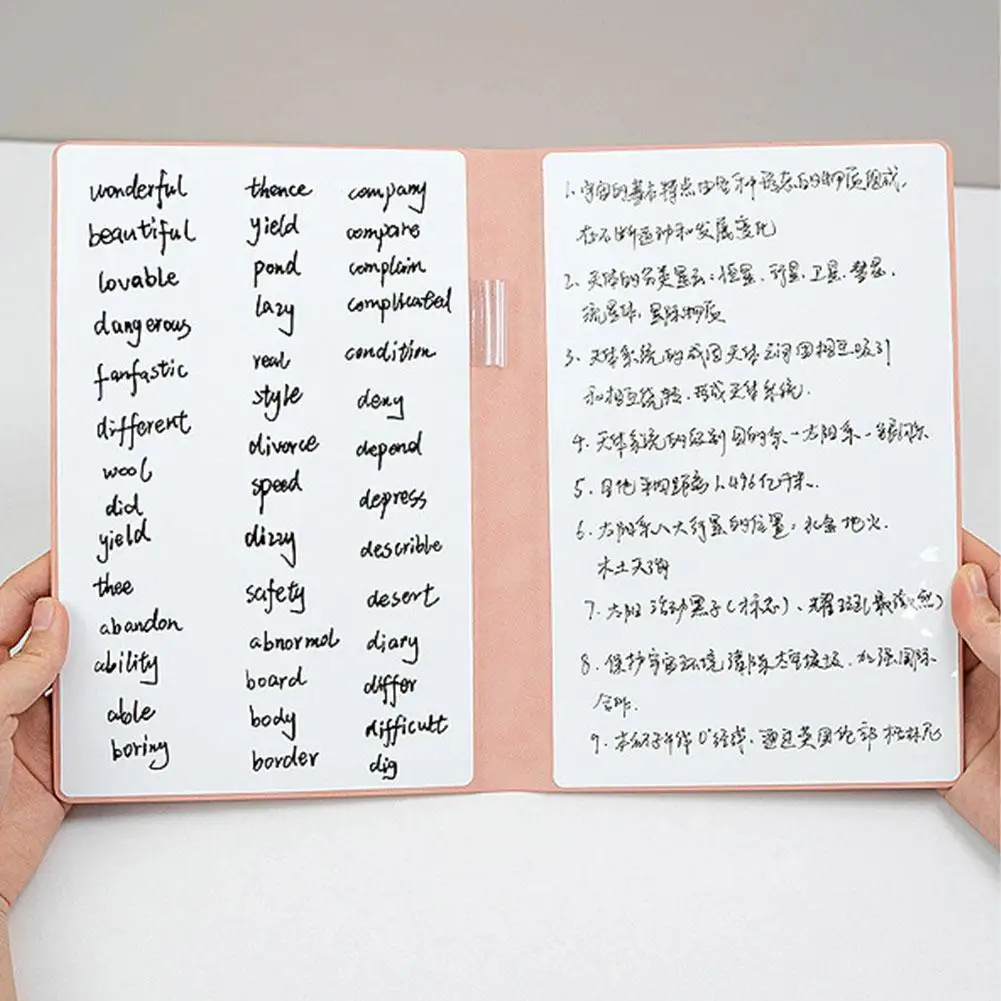 wonderful
beautiful
lovable
dangerous
fanfastic
different
wool
did
yield
thee
abandon
ability
able
boring
thence
yield
pond
lazy
real
style
divorce
speed
dizzy
safety
abnormal
board
body
border
company
compare
complain
complicated
condition
deny
depend
depress
describle
desert
diary
differ
difficult
dig
1. 宇宙的基本特点由各种形态的物质组成,
在不断运动和发展变化
2. 天体的分类星云、恒星、行星、卫星、彗星、
流星体、星际物质
3. 天体系统的成因天体之间因相互吸引
和相互绕转,形成天体系统.
4. 天体系统的级别 地月系-太阳系-银河系
5. 日地平均距离1.496亿千米.
6. 太阳系八大行星的位置,水金地火
木土天海
7. 太阳活动黑子(标志)、耀斑(最激烈)
8. 保护宇宙环境 清除太空垃圾、加强国际
合作.
9. 本初子午线0°经线,通过英国伦敦格林尼